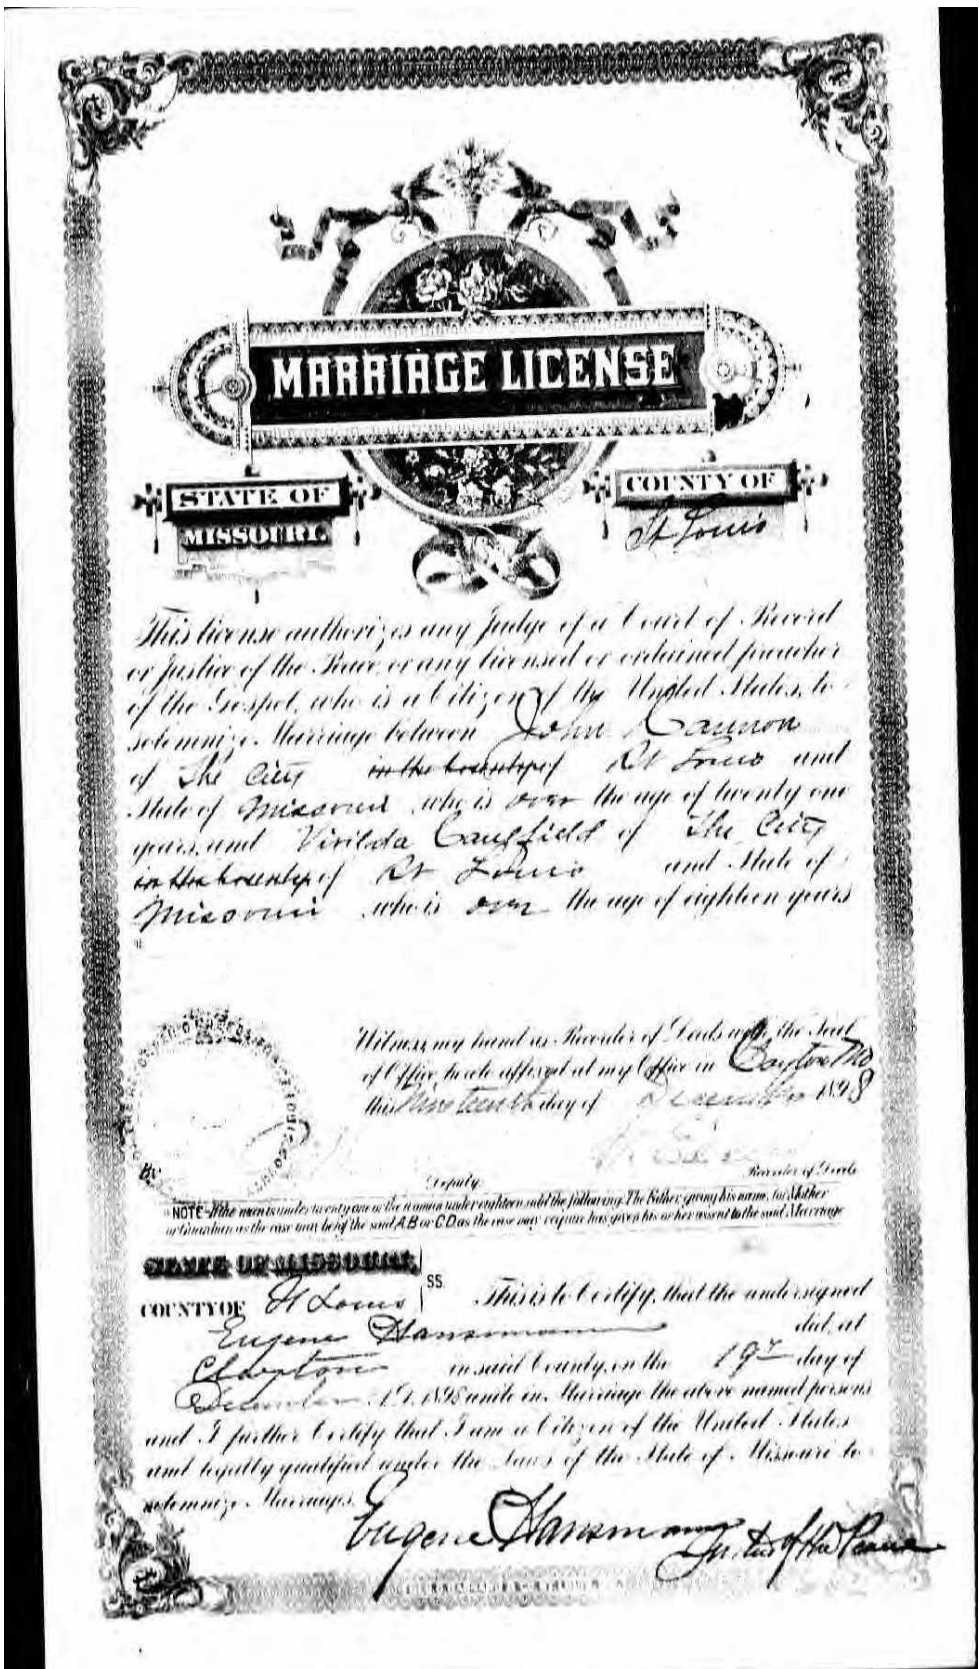 MARRIAGE LICENSE
STATE OF
MISSOURI.
COUNTY OF
St Louis
This license authorizes any Judge of a Court of Record
or Justice of the Peace, or any licensed or ordained preacher
of the Gospel, who is a Citizen of the United States, to
solemnize Marriage between John Cannon
of The City in the County of St Louis and
State of Missouri who is over the age of twenty one
years, and Virilda Caulfield of The City
in the County of St Louis and State of
Missouri who is over the age of eighteen years
Witness my hand as Recorder of Deeds with the Seal
of Office hereto affixed at my Office in Clayton Mo
this Nineteenth day of December 1898
By
Deputy.
Recorder of Deeds
NOTE-If the man is under twenty one or the woman under eighteen, add the following: The Father giving his name, (or Mother
or Guardian as the case may be) of the said A.B or C.D as the case may require has given his or her assent to the said Marriage
STATE OF MISSOURI,
SS
COUNTY OF St Louis This is to Certify, that the undersigned
Eugene Hansmann did, at
Clayton in said County, on the 19th day of
December A.D. 1898 unite in Marriage the above named persons
and I further Certify that I am a Citizen of the United States
and legally qualified under the Laws of the State of Missouri to
solemnize Marriages.
Eugene Hansmann Justice of the Peace